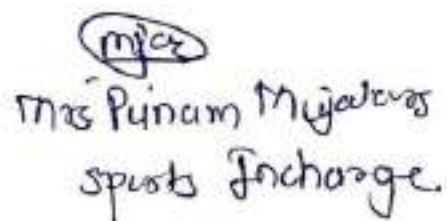 Mrs Punam Mujawar
Sports Incharge.